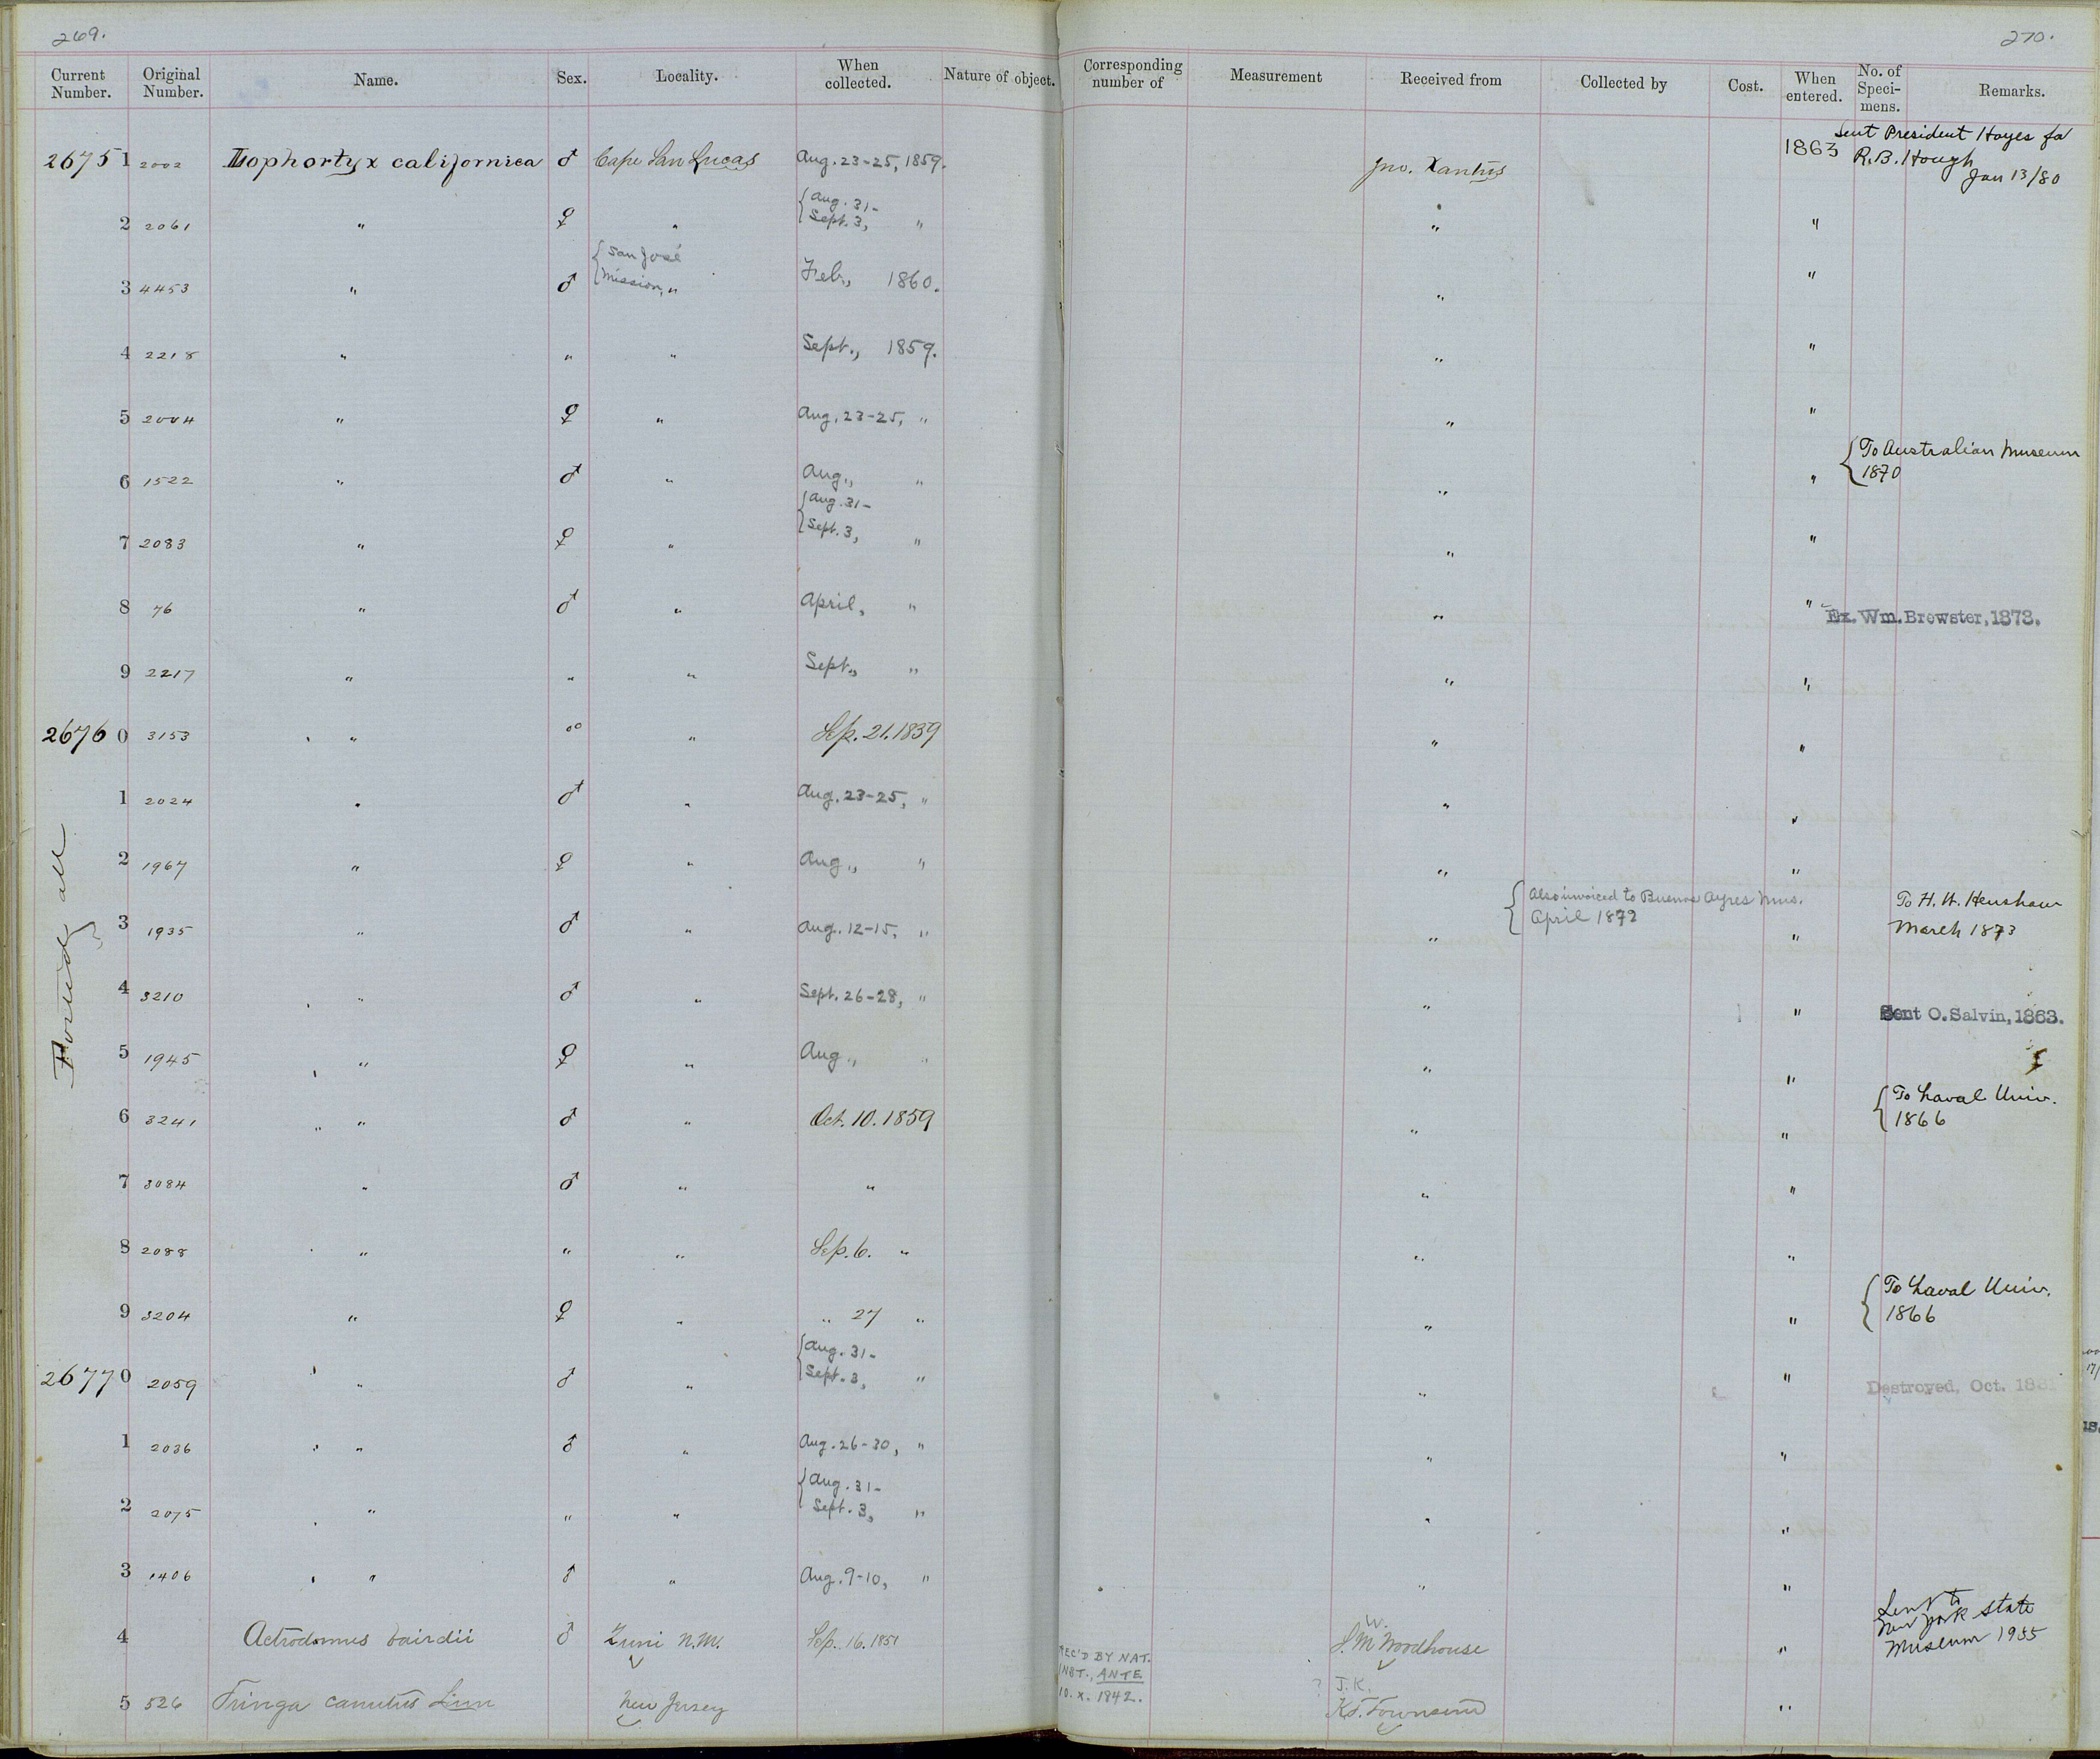 269.
270.
Current Number. Original Number. Name. Sex. Locality. When collected. Nature of object. Corresponding number of Measurement Received from Collected by Cost. When entered. No. of Speci-mens. Remarks.
26751 2002 Lophortyx californica ♂ Cape San Lucas Aug. 23-25, 1859. Jno. Xantus 1863 Sent President Hayes for
R.B. Hough
Jan 13/80
2 2061 " ♀ " { Aug. 31-
Sept. 3, " " "
3 4453 " ♂ { San José
Mission, " Feb., 1860. " "
4 2218 " " " Sept., 1859. " "
5 2004 " ♀ " Aug. 23-25, " " "
6 1522 " ♂ " Aug., " " " { To Australian Museum
1870
7 2083 " ♀ " { Aug. 31-
Sept. 3, " " "
8 76 " ♂ " April, " " " Ex. Wm. Brewster, 1873.
9 2217 " " " Sept., " " "
26760 3153 " " Sep. 21. 1859 " "
1 2024 " ♂ " Aug. 23-25, " " "
2 1967 " ♀ " Aug., " " "
3 1935 " ♂ " Aug. 12-15, " " { Also invoiced to Buenos Ayres Mus.
April 1872 " To H. W. Henshaw
March 1873
4 3210 " ♂ " Sept. 26-28, " " " Sent O. Salvin, 1863.
5 1945 " ♀ " Aug., " " "
6 3241 " ♂ " Oct. 10. 1859 " " { To Laval Univ.
1866
7 3084 " ♂ " " " "
8 2088 " " " Sep. 6. " " "
9 3204 " ♀ " " 27 " " " { To Laval Univ.
1866
26770 2059 " ♂ " { Aug. 31-
Sept. 3, " " " Destroyed, Oct. 188
1 2036 " ♂ " Aug. 26-30, " " "
2 2075 " " " { Aug. 31-
Sept. 3, " " "
3 1406 " ♂ " Aug. 9-10, " " "
4 Actrodomus bairdii ♂ Zuni N.M. Sep. 16. 1851 W.
S.M Woodhouse " Sent to
New York State
Museum 1955
5 526 Tringa canutus Linn New Jersey REC'D BY NAT.
INST., ANTE
10. X. 1842. ? J.K.
K.T. Townsend "
Found all